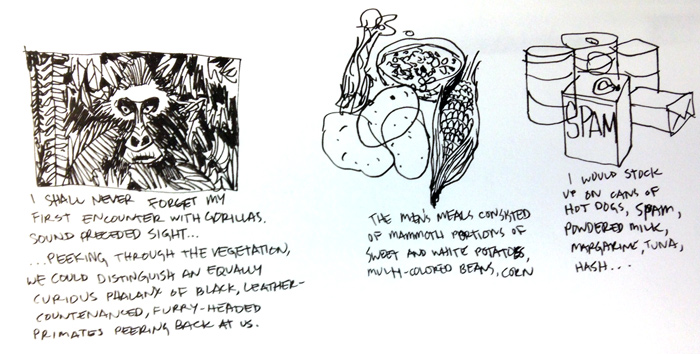 I SHALL NEVER FORGET MY
FIRST ENCOUNTER WITH GORILLAS.
SOUND PRECEDED SIGHT...
...PEEKING THROUGH THE VEGETATION,
WE COULD DISTINGUISH AN EQUALLY
CURIOUS PHALANX OF BLACK, LEATHER-
COUNTENANCED, FURRY-HEADED
PRIMATES PEERING BACK AT US.
THE MEN'S MEALS CONSISTED
OF MAMMOTH PORTIONS OF
SWEET AND WHITE POTATOES,
MULTI-COLORED BEANS, CORN
SPAM
I WOULD STOCK
UP ON CANS OF
HOT DOGS, SPAM,
POWDERED MILK,
MARGARINE, TUNA,
HASH...